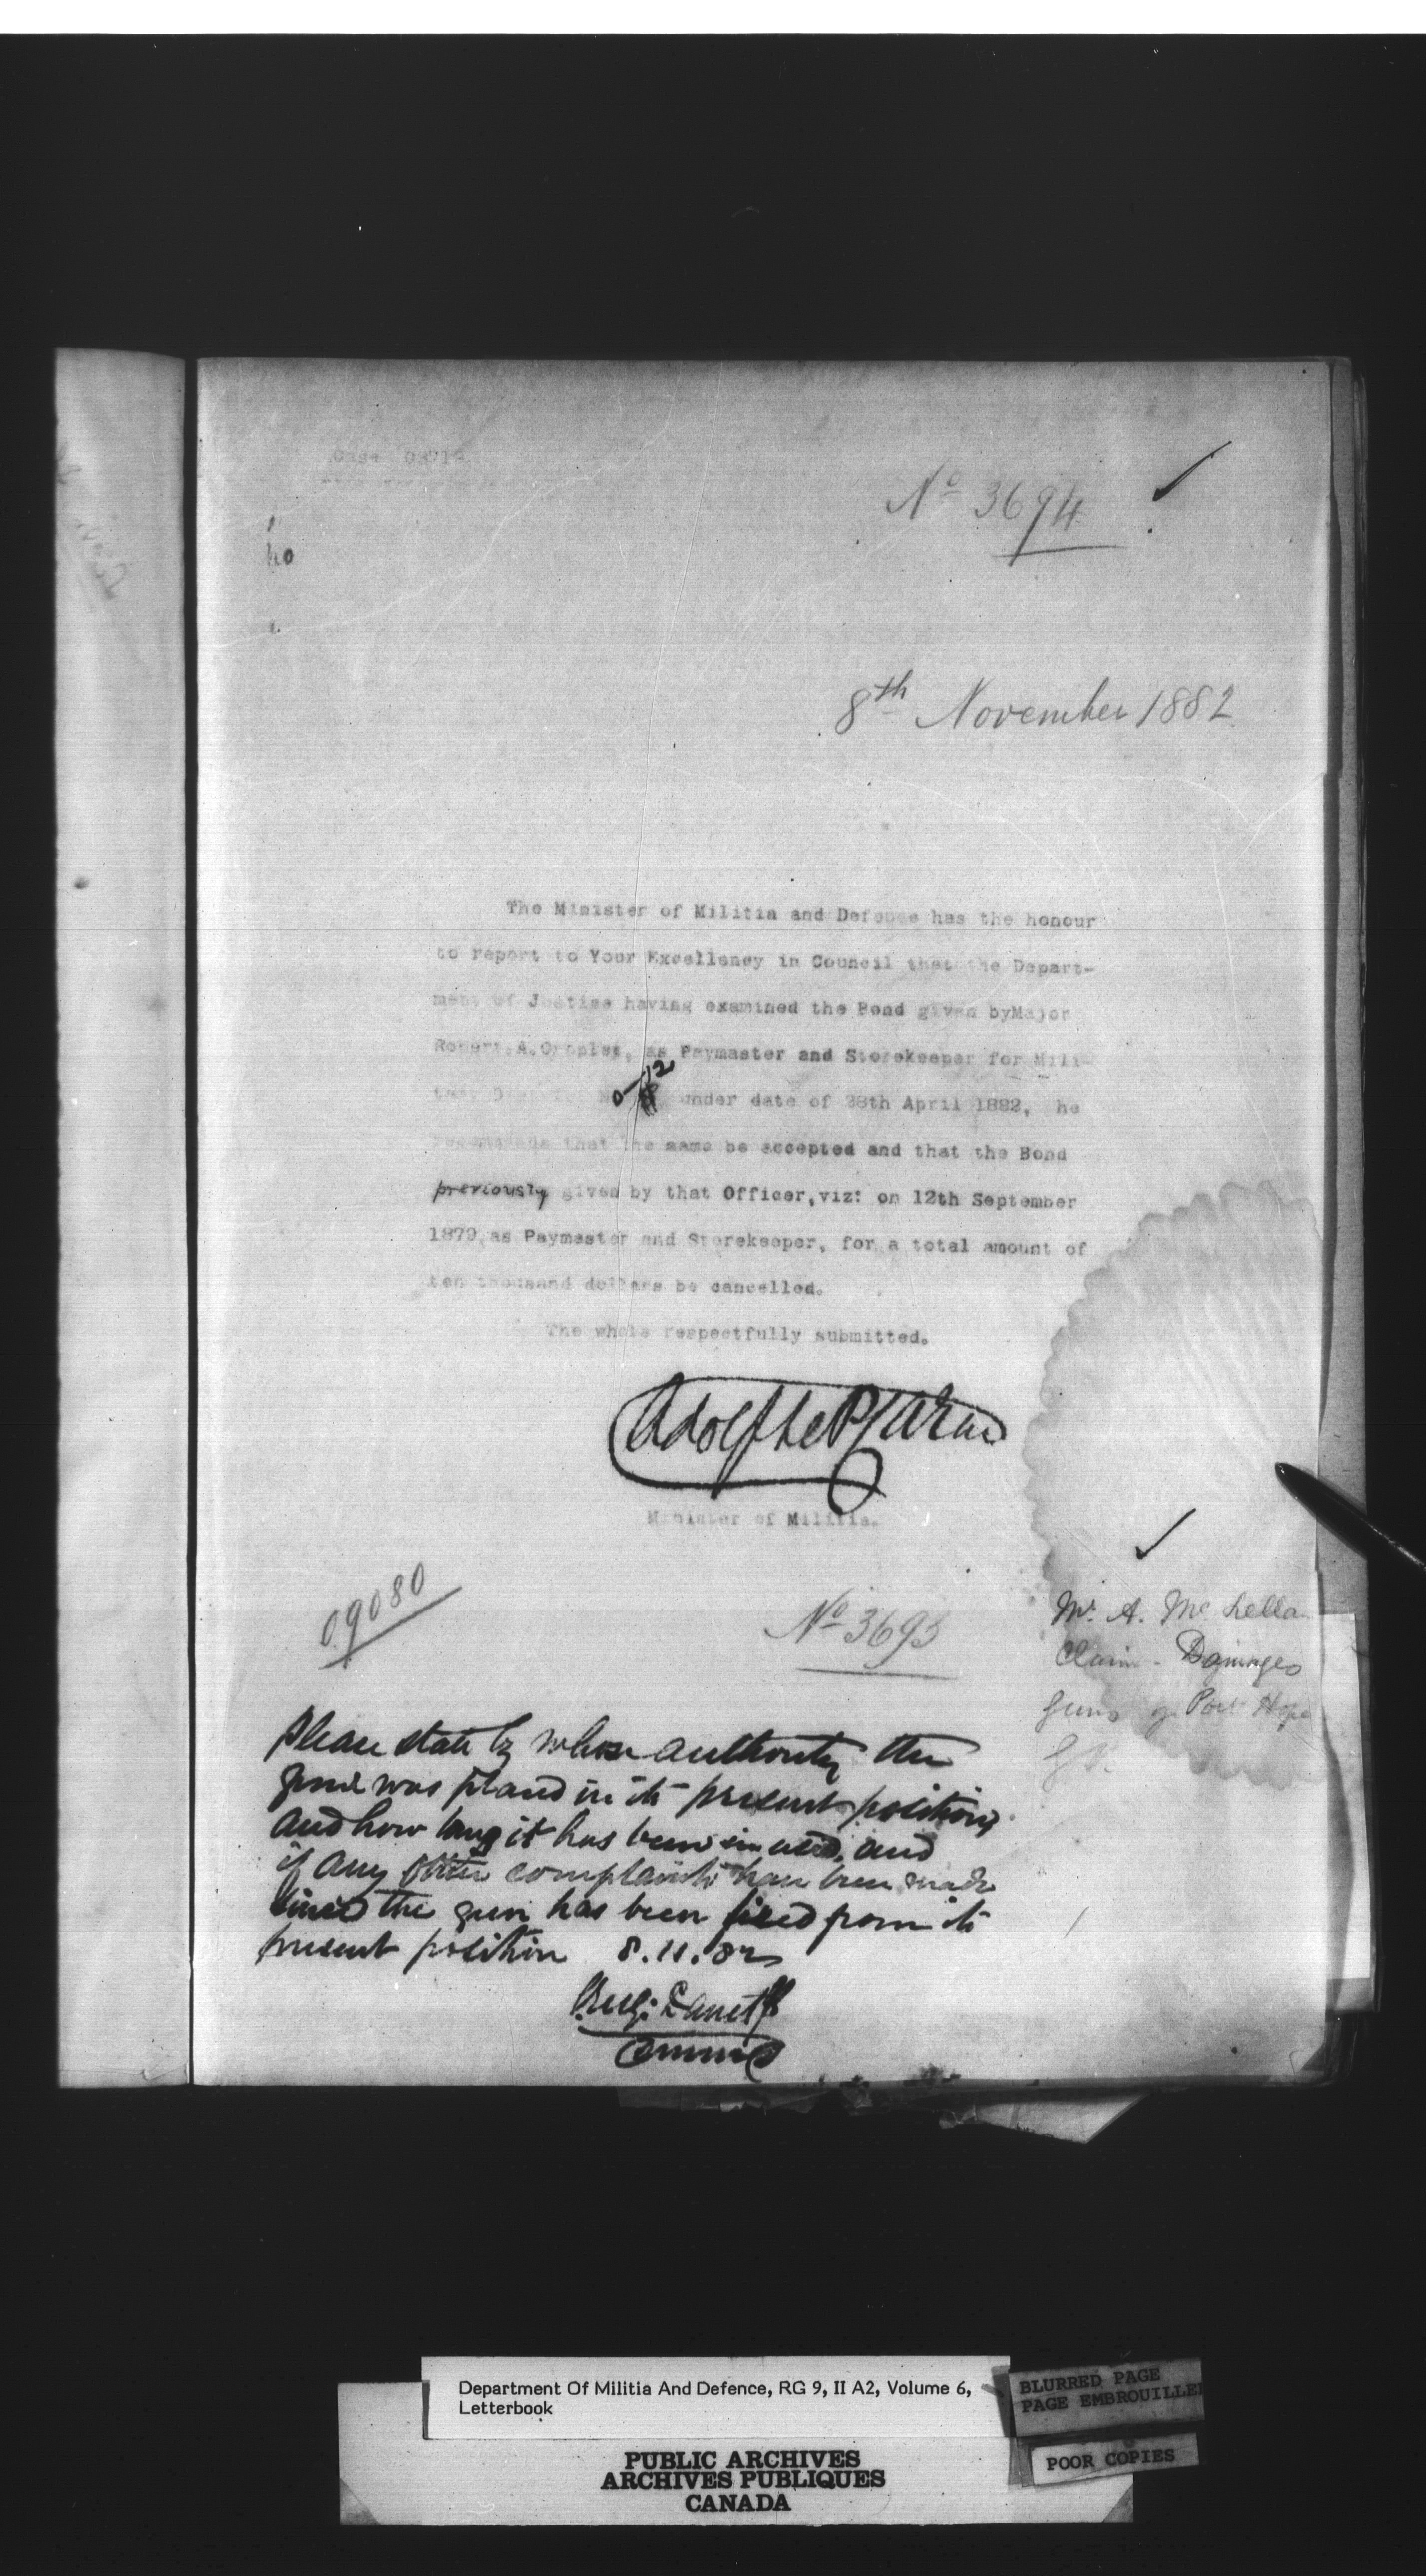 Case 0371
No 3694
8th November 1882
The Minister of Militia and Defence has the honour
to report to Your Excellency in Council that the Depart-
ment of Justice having examined the Bond given byMajor
Robert.A. as Paymaster and Storekeeper for Mili-
tary 12 under date of 28th April 1882, he
recommends that the same be accepted and that the Bond
previously given by that Officer,viz: on 12th September
1879,as Paymaster and Storekeeper, for a total amount of
ten thousand dollars be cancelled.
The whole respectfully submitted.
Adolphe P Caron
Minister of Militia.
09080
No 3695
Mr. A. Mc Lella
Claim - Damages
Guns Port Hope
Please state by whose authority the
was placed in its present position,
and how long it has been in used, and
if any other complaints have been made
since the gun has been fired from its
present position 8.11.82
Department Of Militia And Defence, RG 9, II A2, Volume 6,
Letterbook
BLURRED PAGE
PAGE EMBROUILLE
POOR COPIES
PUBLIC ARCHIVES
ARCHIVES PUBLIQUES
CANADA